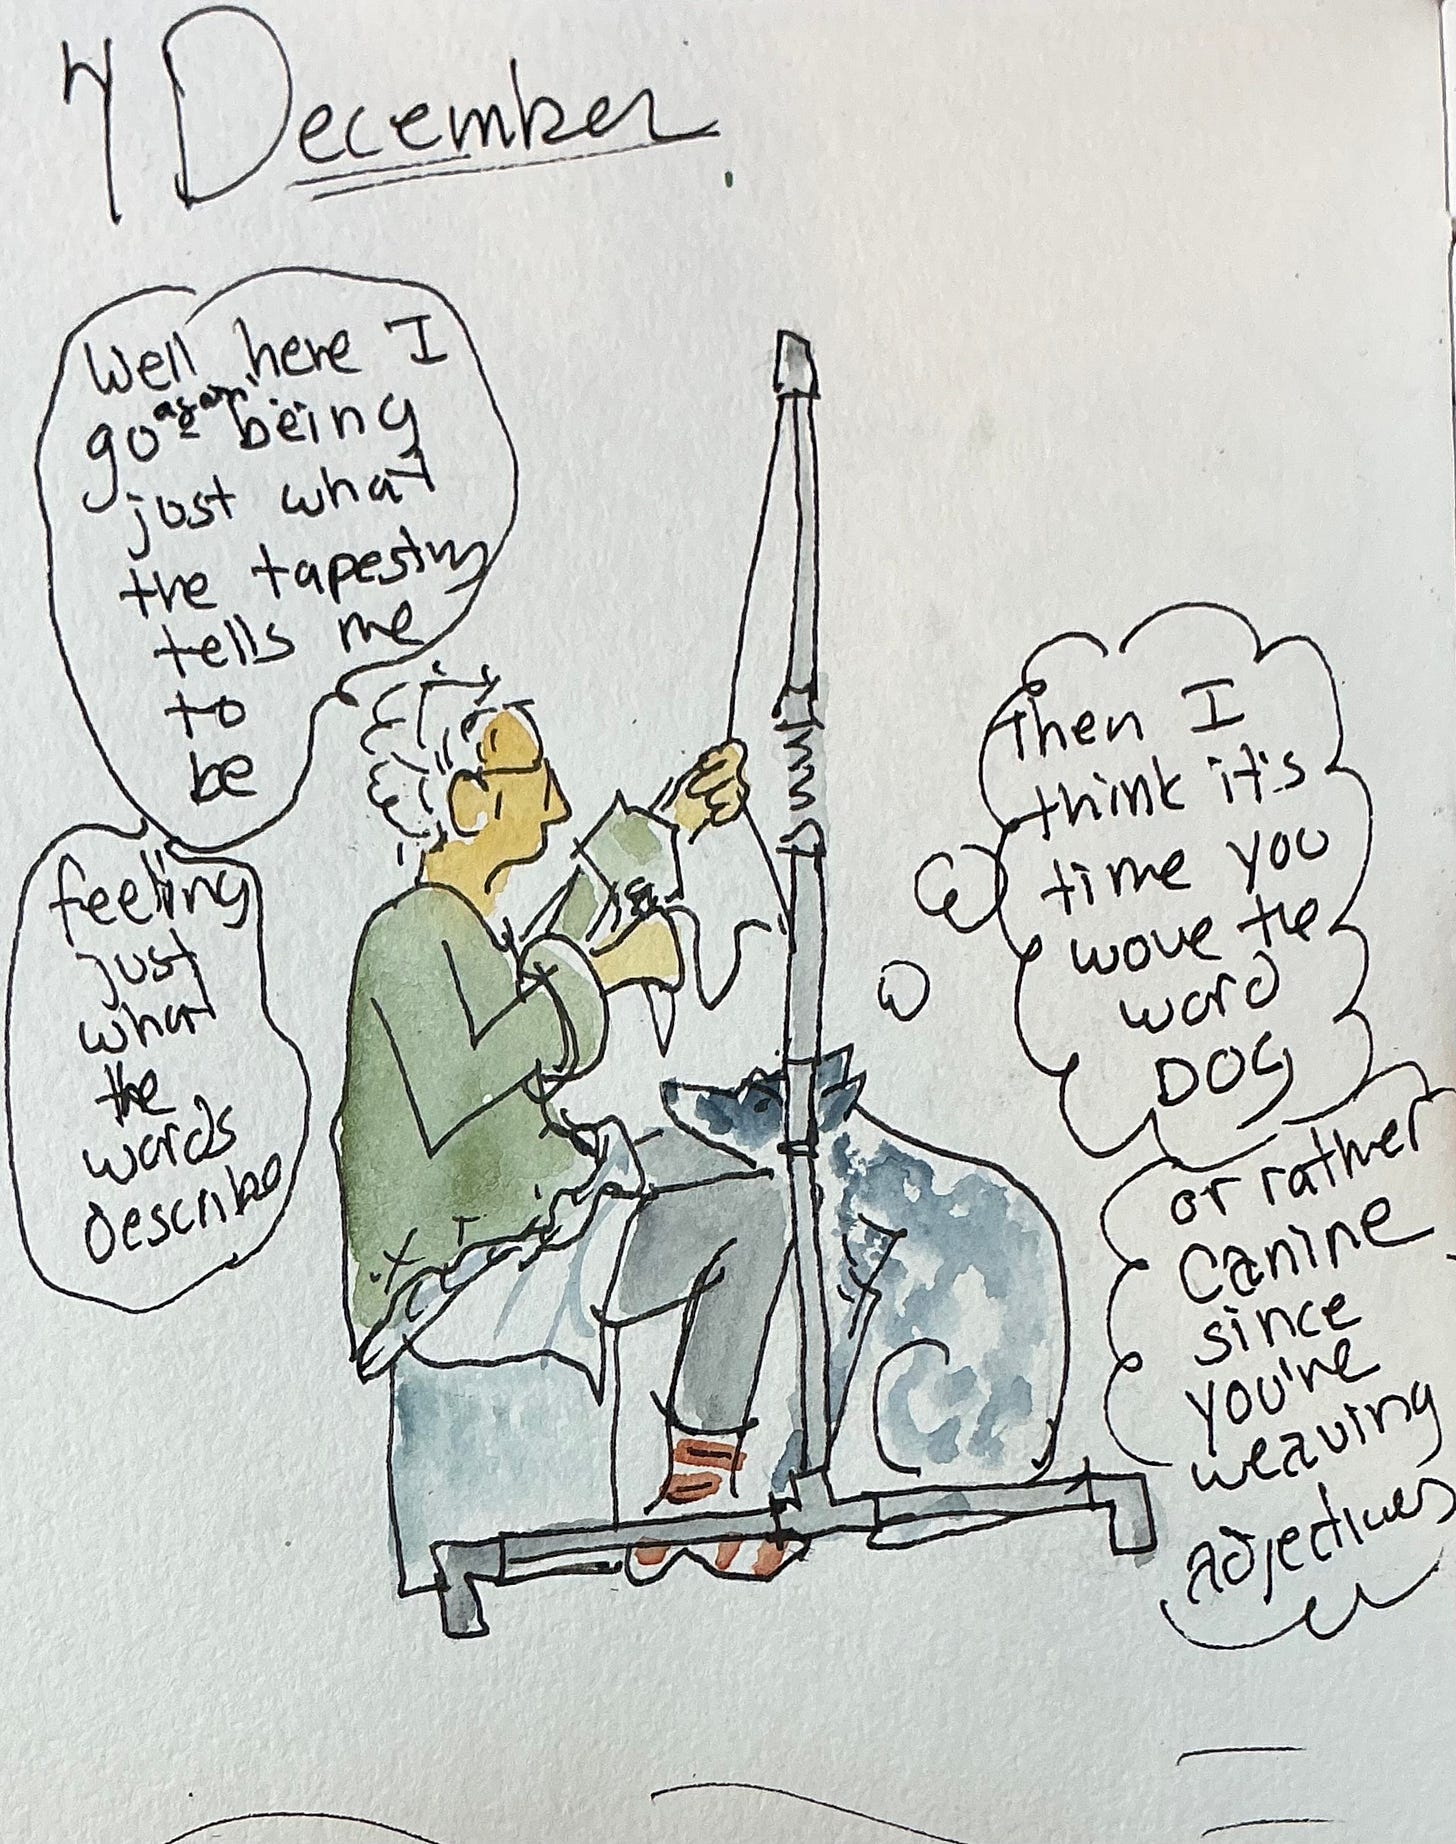 4 December
Well here I
go again being
just what
the tapestry
tells me
to
be
feeling
just
what
the
words
describe
Then I
think it's
time you
wove the
word
DOG
or rather
canine
since
you're
weaving
adjectives